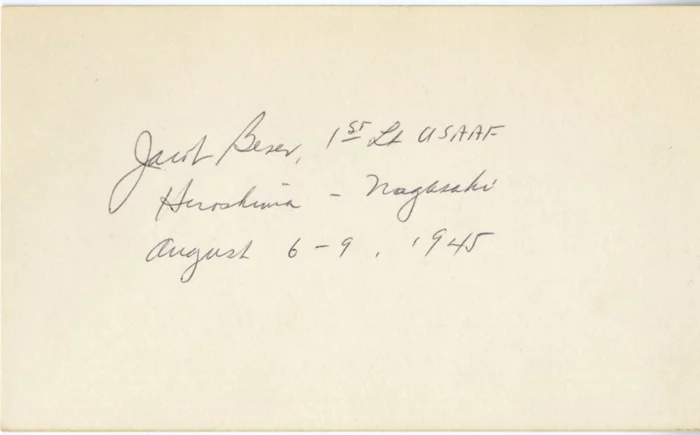 Jacob Beser, 1st Lt USAAF
Hiroshima - Nagasaki
August 6-9, 1945